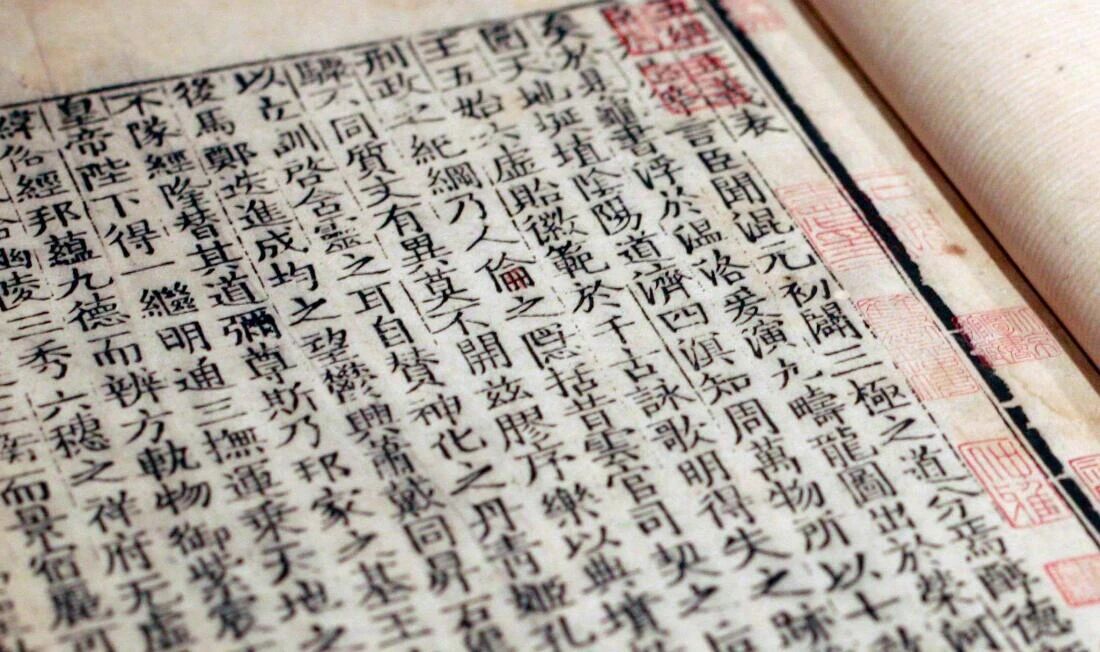 五經正義表
言臣聞混元初闢三極之道分焉醇德
矣於是龜書浮於温洛爰演九疇龍圖出於榮河
圍天地埏埴陰陽道濟四溟知周萬物所以七教
王五始六虛貽徽範於千古詠歌明得失之跡
刑政之紀綱乃人倫之隱括昔雲官司契之后
驟不同質文有異莫不開兹膠序樂以典墳
以立訓啓含靈之耳目賛神化之丹青姬孔
後馬鄭迭進成均之望鬱興蕭戴同昇石渠
不隊經隆替其道彌尊斯乃邦家之基王
皇帝陛下得一繼明通三撫運乘天地之
緯俗經邦蘊九德而辨方軌物御紫宸
洽幽陵三秀六穗之祥府无虛
衡而景宿麗可